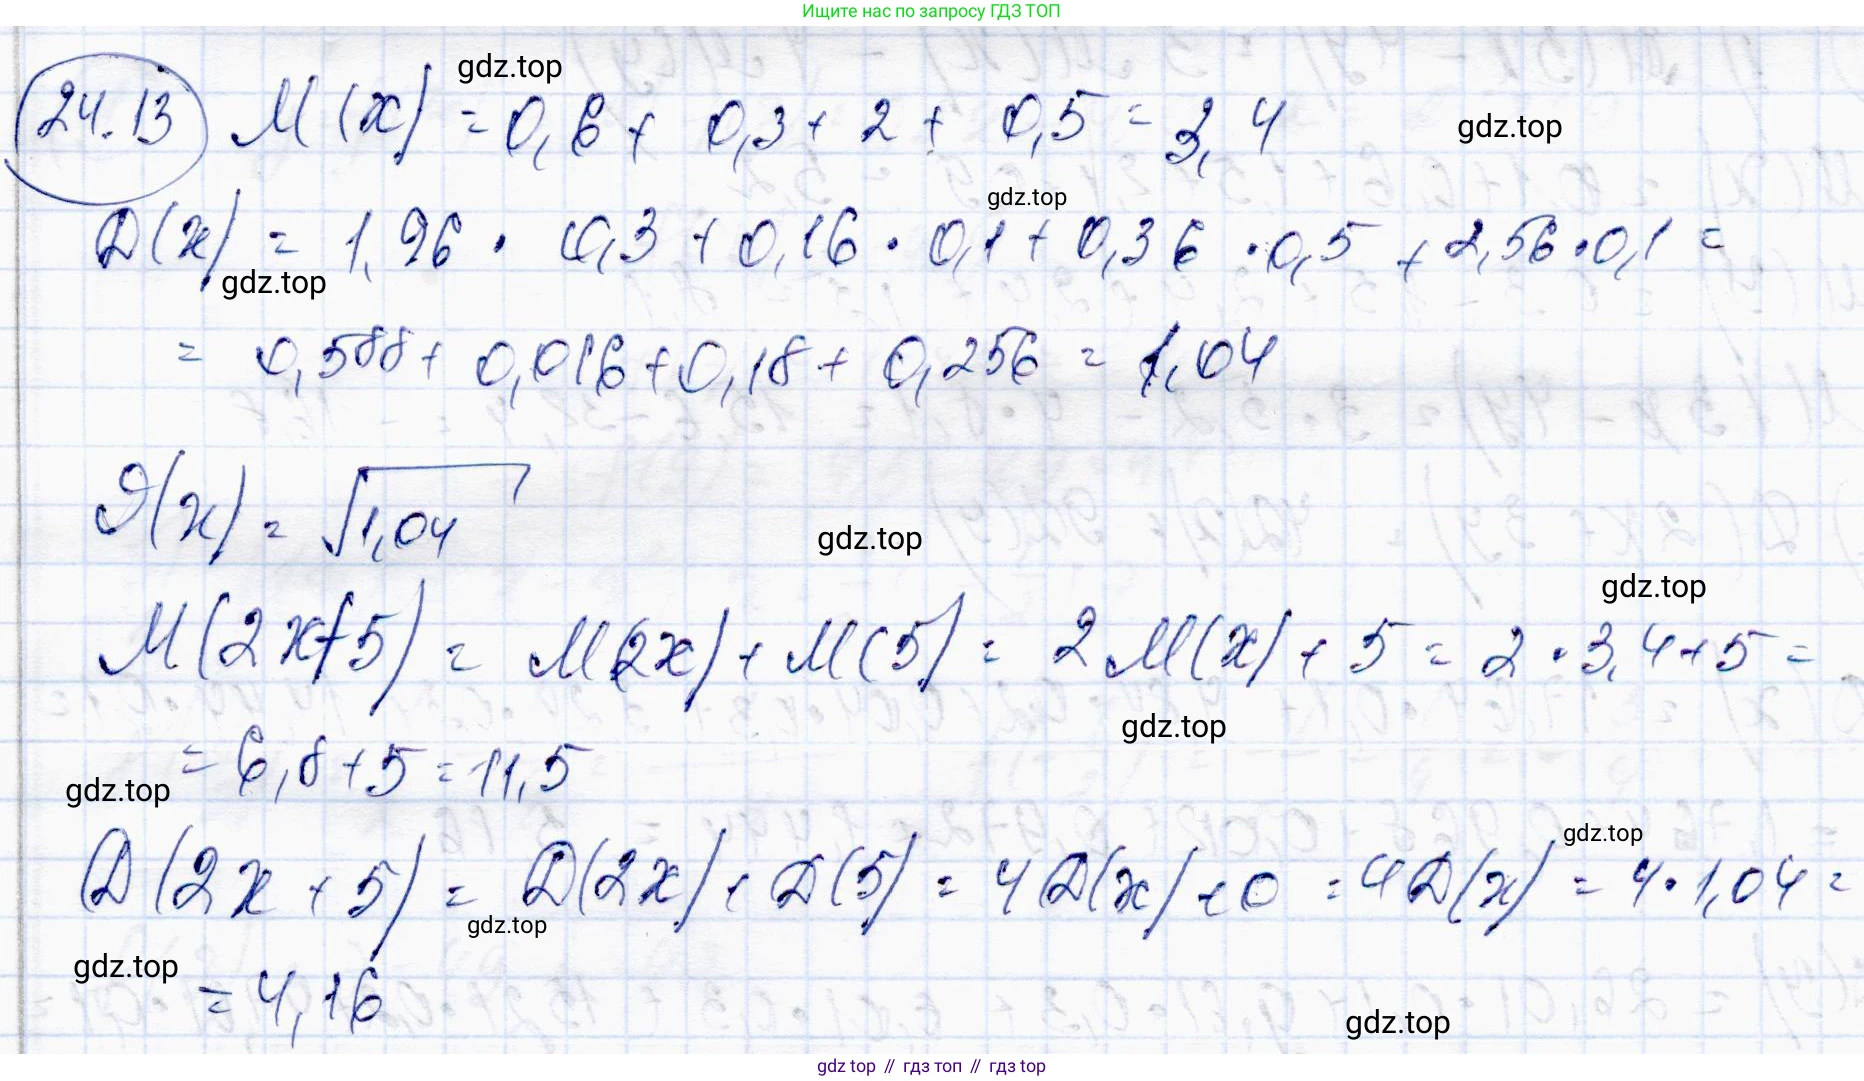 Ищите нас по запросу ГДЗ ТОП
gdz.top
24.13 M(x) = 0,6 + 0,3 + 2 + 0,5 = 3,4
gdz.top
gdz.top
D(x) = 1,96 · 0,3 + 0,16 · 0,1 + 0,36 · 0,5 + 2,56 · 0,1 =
gdz.top
= 0,588 + 0,016 + 0,18 + 0,256 = 1,04
(x) = √1,04
gdz.top
gdz.top
M(2x+5) = M(2x) + M(5) = 2M(x) + 5 = 2 · 3,4 + 5 =
gdz.top
= 6,8 + 5 = 11,5
gdz.top
gdz.top
D(2x + 5) = D(2x) + D(5) = 4D(x) + 0 = 4D(x) = 4 · 1,04 =
gdz.top
gdz.top
= 4,16
gdz.top
gdz top // гдз топ // гдз top